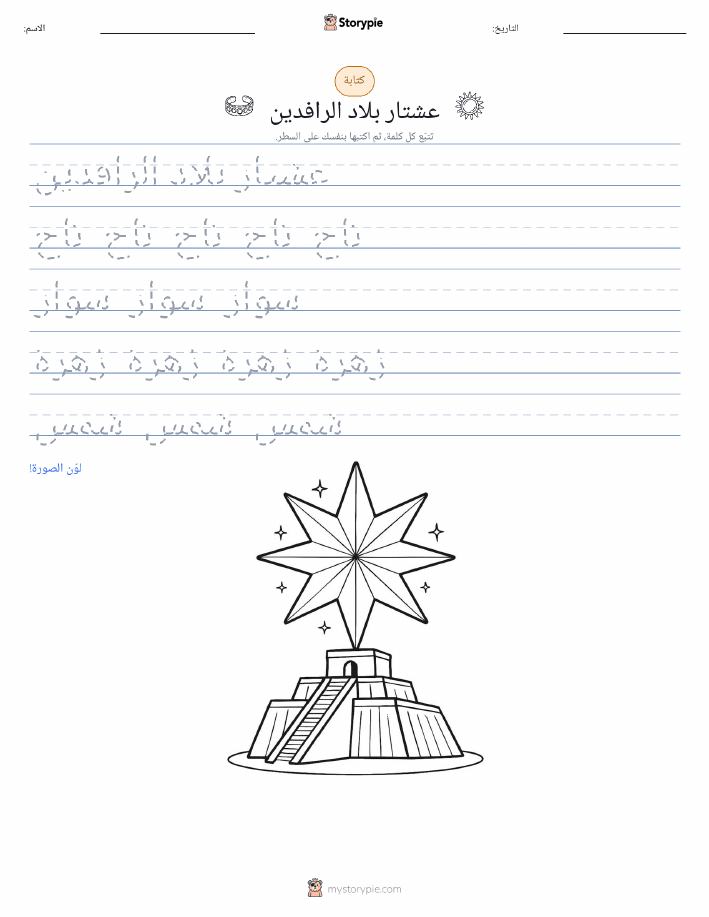 الاسم:
Storypie
التاريخ:
كتابة
عشتار بلاد الرافدين
تتبّع كل كلمة، ثم اكتبها بنفسك على السطر.
عشتار بلاد الرافدين
تاج تاج تاج تاج تاج
سوار سوار سوار
زهرة زهرة زهرة زهرة
شمس شمس شمس
لوّن الصورة!
mystorypie.com